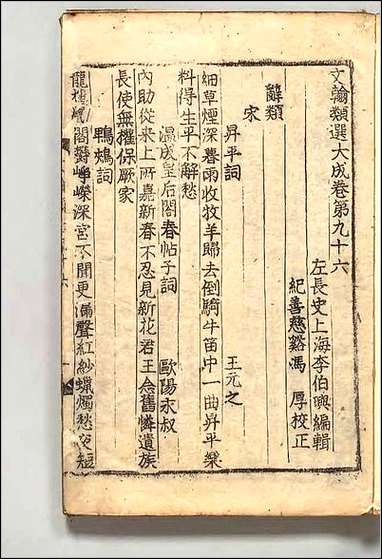 文翰類選大成卷第九十六
左長史上海李伯璵編輯
紀善慈谿馮 厚校正
辭類
宋
昇平詞 王元之
細草煙深暮雨收牧羊歸去倒騎牛笛中一曲昇平樂
料得生平不解愁
溫成皇后閣春帖子詞 歐陽永叔
內助從來上所嘉新春不忍見新花君王念舊憐遺族
長使無權保厥家
鴨鴂詞
龍樓 閣鬱崢嶸深宮不聞更漏聲紅紗蠟燭愁夜短